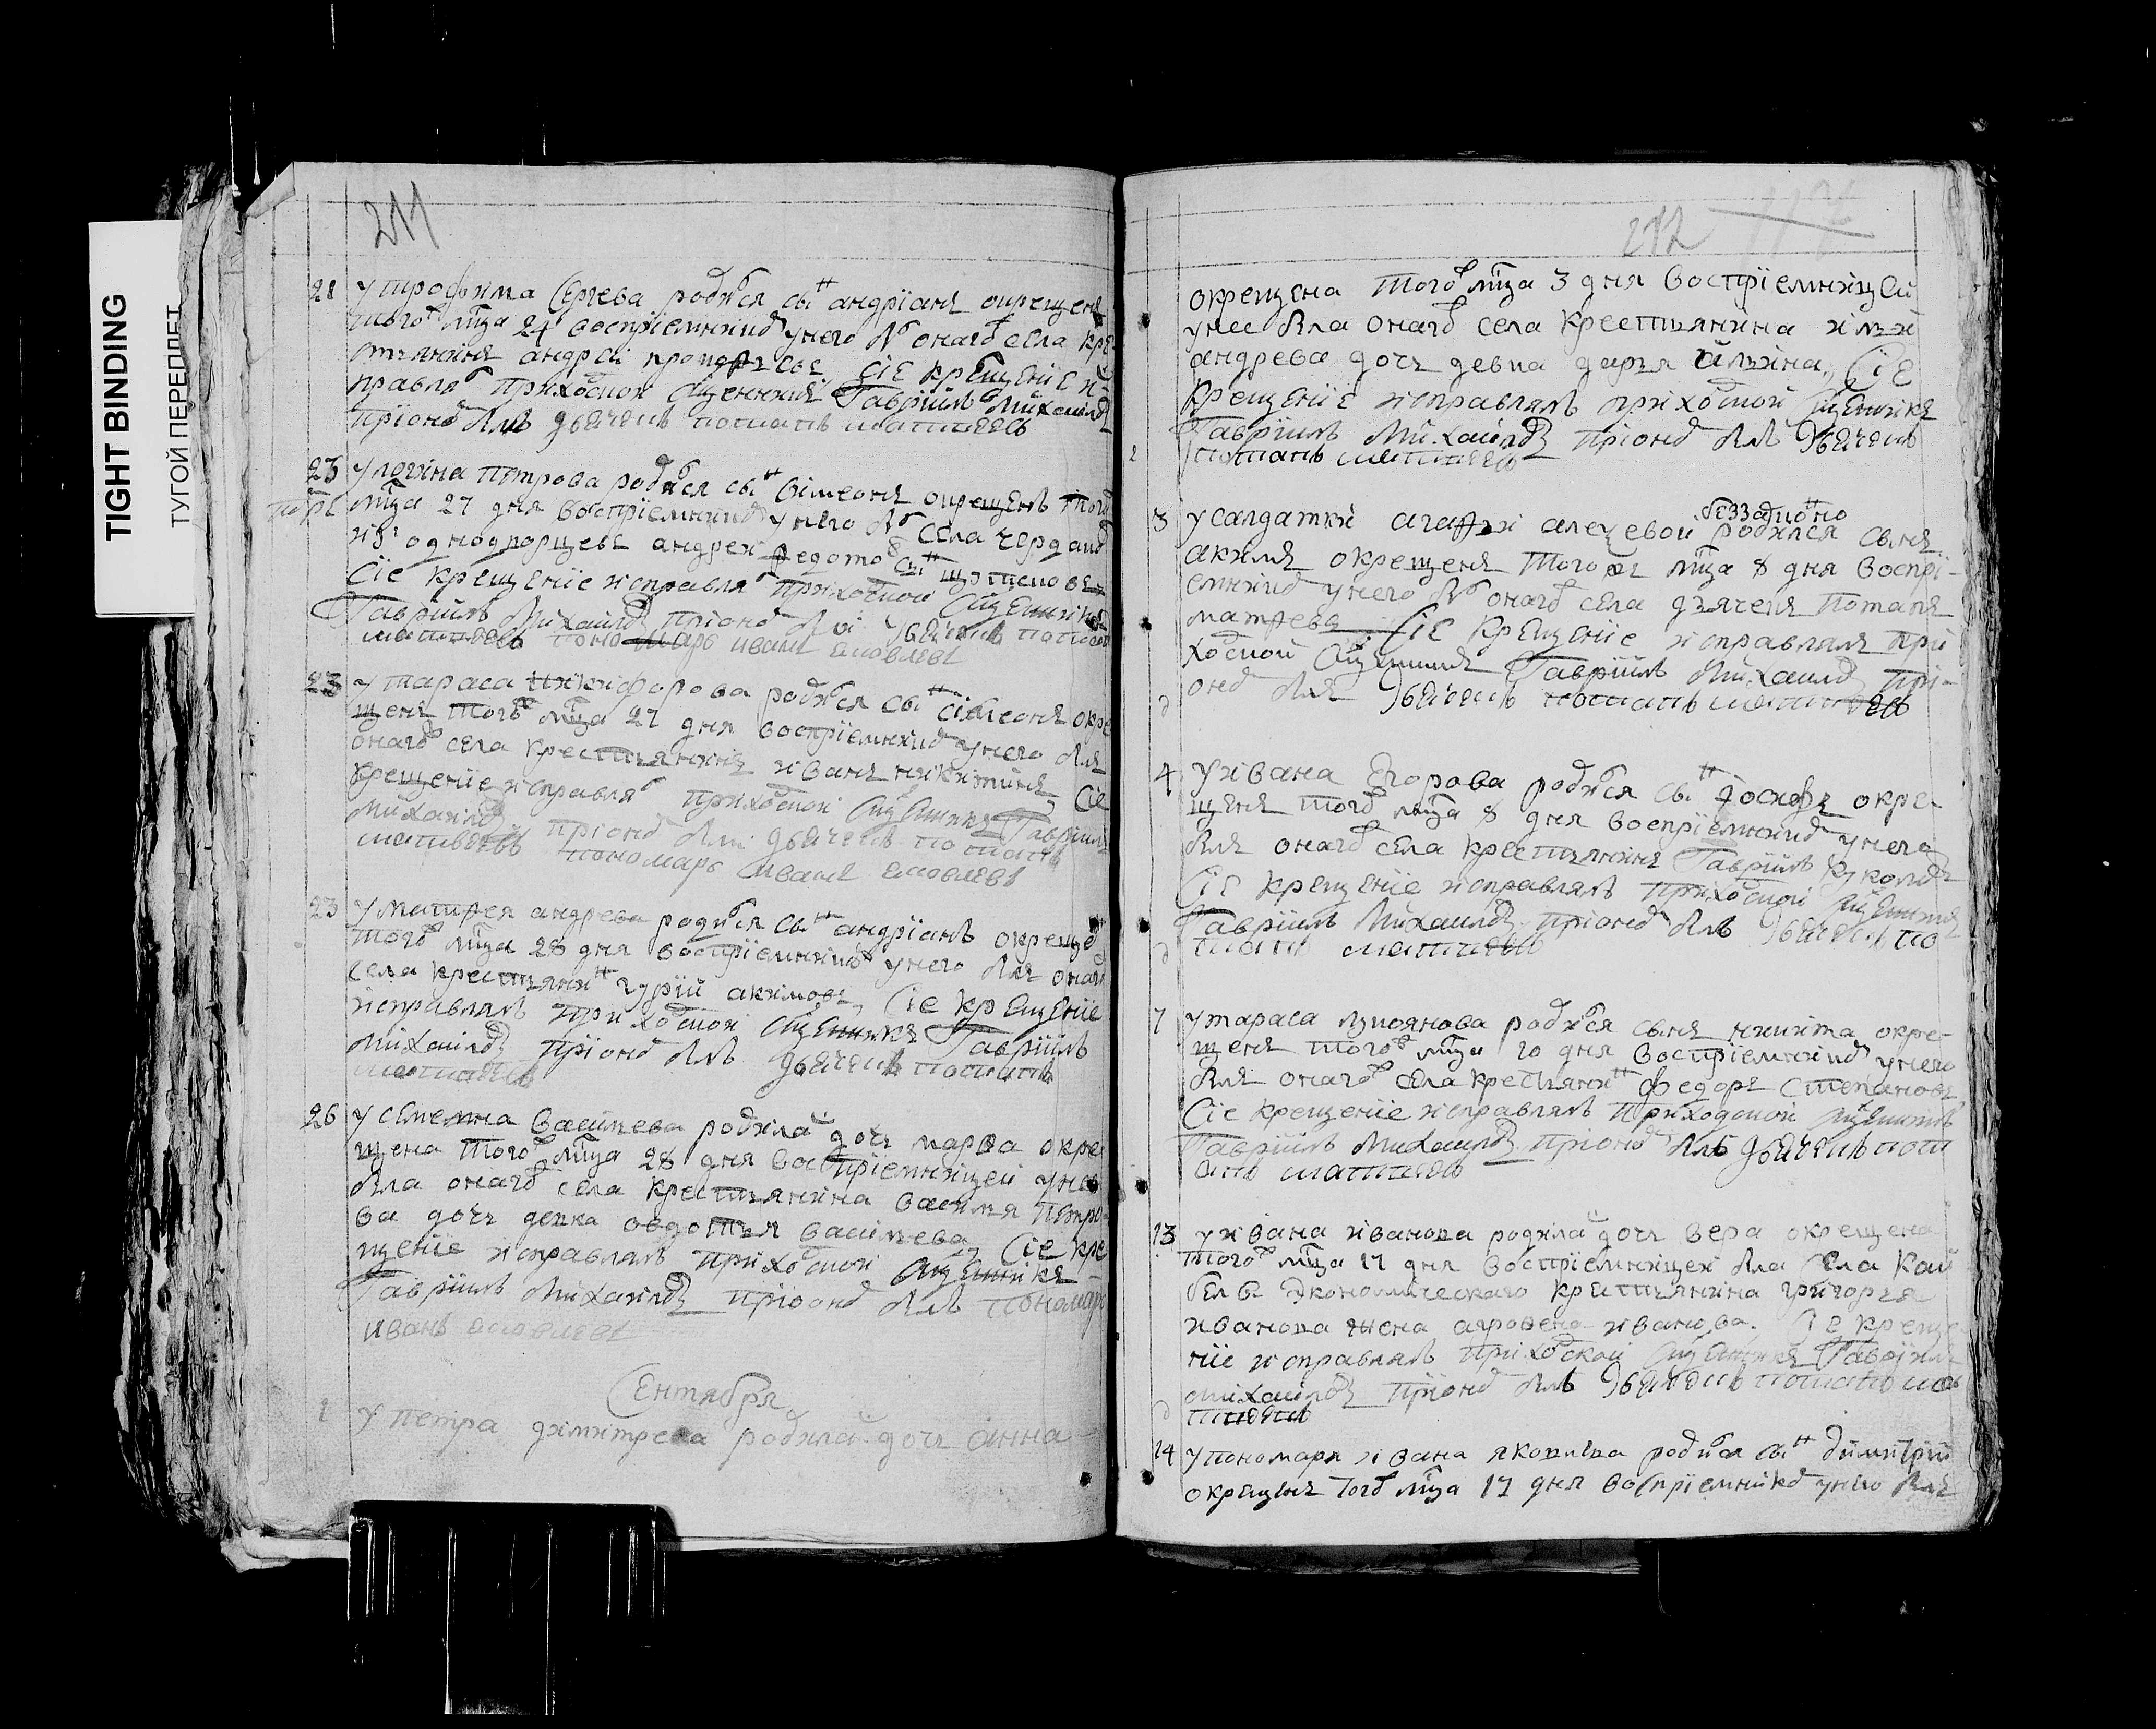 TIGHT BINDING
ТУГОЙ ПЕРЕПЛЕТ
211
21 У трофима Сергева родился сынъ андрїанъ окрещенъ
того мца 24 воспрїемникъ унего былъ онагъ села кре
стьянинъ андрей Сїе крещенїе и
правлялъ приходской сщенникъ Гаврїилъ Михаиловъ
приономъ былъ дьячекъ потапъ матвеевъ
23 У логина петрова родился сынъ сїмеонъ окрещенъ того
мца 27 дня воспрїемникъ унего былъ села чердаковъ
изъ однодворцевъ андрей федотовъ сынъ
Сїе крещенїе исправлялъ приходской сщенникъ
Гаврїилъ Михаиловъ приономъ были дьячекъ потапъ
матвеевъ пономарь иванъ яковлевъ
23 У тараса никифорова родился сынъ сїмеонъ окре
щенъ того мца 27 дня воспрїемникъ унего былъ
онагъ села крестьянинъ иванъ никитинъ Сїе
крещенїе исправлялъ приходской сщенникъ Гаврїилъ
Михаиловъ приономъ были дьячекъ потапъ
матвеевъ пономарь иванъ яковлевъ
23 У матфея андрева родился сынъ андрїанъ окрещенъ
того мца 28 дня воспрїемникъ унего былъ онагъ
села крестьянинъ гурїй акимовъ, Сїе крещенїе
исправлялъ приходской сщенникъ Гаврїилъ
Михаиловъ приономъ былъ дьячекъ потапъ
матвеевъ
26 У семена васильева родила дочь марфа окре
щена того мца 28 дня воспрїемницей унее
была онагъ села крестьянина василья петро
ва дочь девка авдотья васильева Сїе кре
щенїе исправлялъ приходской сщенникъ
Гаврїилъ Михаиловъ приономъ былъ пономарь
иванъ яковлевъ
Сентябрь
1 У петра димитрева родила дочь анна
212
окрещена того мца 3 дня воспрїемницей
унее была онагъ села крестьянина ильи
андрева дочь девка дарья ильина, Сїе
крещенїе исправлялъ приходской сщенникъ
Гаврїилъ Михаиловъ приономъ былъ дьячекъ
потапъ матвеевъ
беззаконно
3 У салдатки агафьи алецевой родился сынъ
акимъ окрещенъ того же мца 8 дня воспрї-
емникъ унего былъ онагъ села дьячекъ потапъ
матфевъ Сїе крещенїе исправлялъ при
ходской сщенникъ Гаврїилъ Михаиловъ при-
ономъ былъ дьячекъ потапъ матвеевъ
4 У ивана Егорова родился сынъ Іосифъ окре-
щенъ того мца 8 дня воспрїемникъ унего
былъ онагъ села крестьянинъ Гаврїилъ
Сїе крещенїе исправлялъ приходской сщенникъ
Гаврїилъ Михаиловъ приономъ былъ дьячекъ по
тапъ матвеевъ
7 У тараса лукоянова родился сынъ никита окре-
щенъ того мца 10 дня воспрїемникъ унего
былъ онагъ села крестьянинъ федоръ степановъ
Сїе крещенїе исправлялъ приходской сщенникъ
Гаврїилъ Михаиловъ приономъ былъ дьячекъ пот
апъ матвеевъ
13 У ивана иванова родила дочь вера окрещена
того мца 17 дня воспрїемницей была села Кай
белъ Экономическаго крестьянина григорья
иванова жена агрофена иванова, Сїе креще
нїе исправлялъ приходской сщенникъ Гаврїилъ
Михаиловъ приономъ былъ дьячекъ потапъ ма
твеевъ
14 У пономаря ивана яковлева родился сынъ димитрїй
окрещенъ того мца 17 дня воспрїемникъ унего былъ